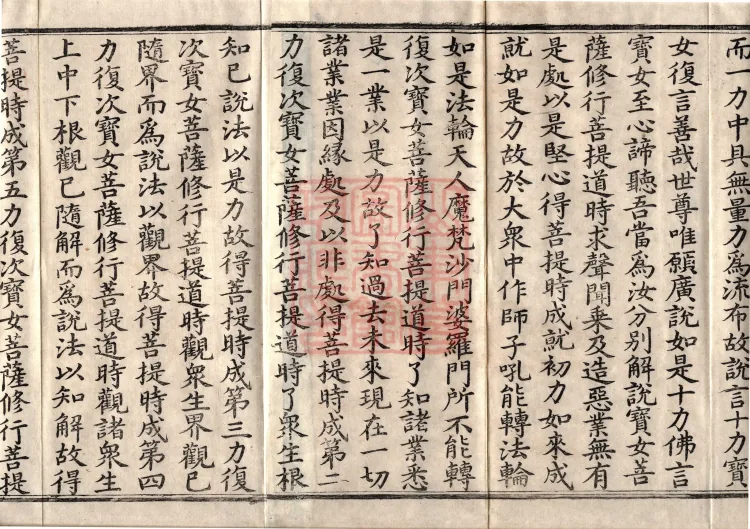 而一力中具無量力爲流布故說言十力寶
女復言善哉世尊唯願廣說如是十力佛言
寶女至心諦聽吾當爲汝分別解說寶女菩
薩修行菩提道時求聲聞乗及造惡業無有
是處以是堅心得菩提時成就初力如來成
就如是力故於大衆中作師子吼能轉法輪
如是法輪天人魔梵沙門婆羅門所不能轉
復次寶女菩薩修行菩提道時了知諸業悉
是一業以是力故了知過去未來現在一切
諸業業因緣處及以非處得菩提時成第二
力復次寶女菩薩修行菩提道時了衆生根
知已說法以是力故得菩提時成第三力復
次寶女菩薩修行菩提道時觀衆生界觀已
隨界而爲說法以觀界故得菩提時成第四
力復次寶女菩薩修行菩提道時觀諸衆生
上中下根觀已隨解而爲說法以知解故得
菩提時成第五力復次寶女菩薩修行菩提